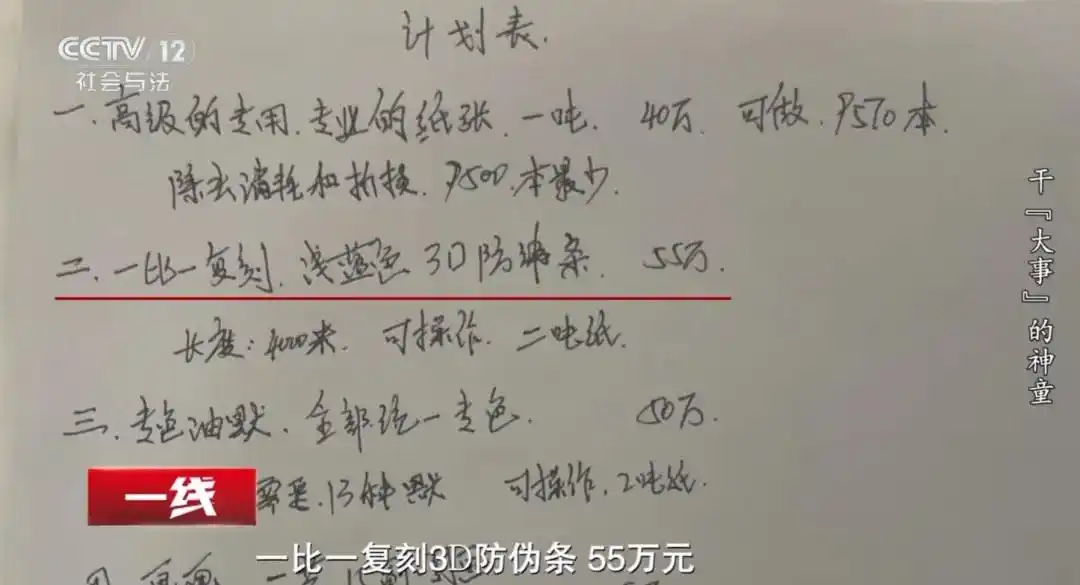 CCTV 12
社会与法
计划表.
一.高级的专用.专业的纸张.一吨. 40万. 可做.9570本.
除去消耗和折损.9500.本最少.
二.一比一复刻.浅蓝色3D防伪条. 55万.
长度:4000米. 可操作.二吨纸.
三.专色油默.全部统一专色. 50万.
需要.13种默 可操作.2吨纸.
干『大事』的神童
一线
一比一复刻3D防伪条 55万元